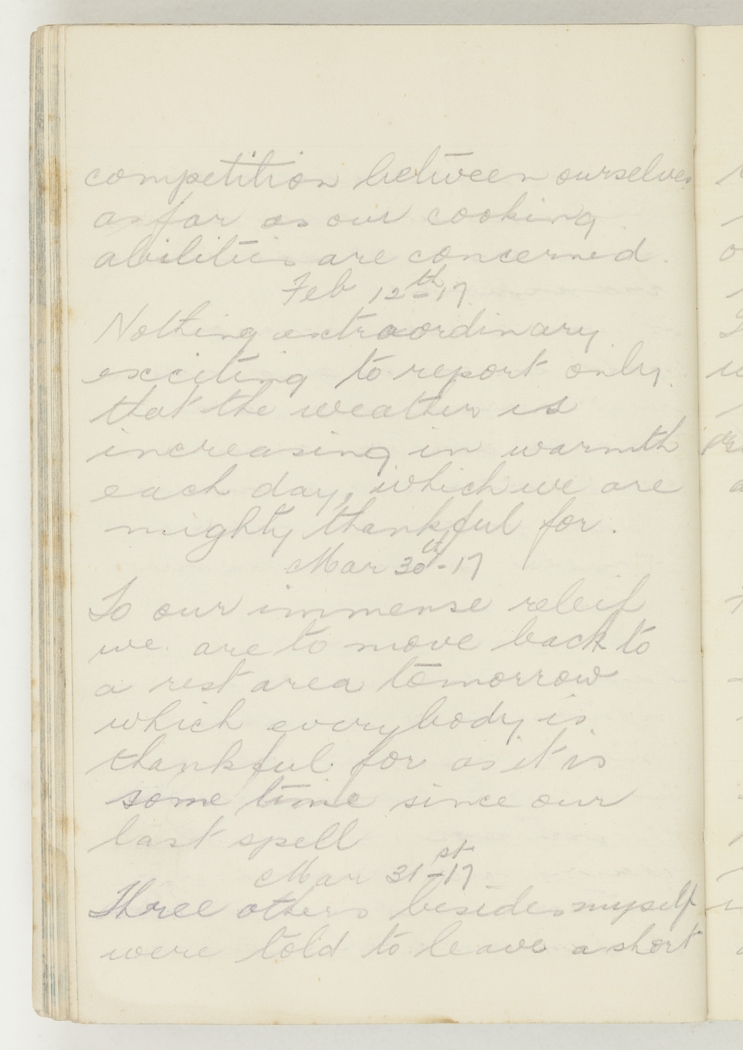 competition between ourselves
as far as our cooking
abilities are concerned.
Feb 12th-17.
Nothing extraordinary
exciting to report only
that the weather is
increasing in warmth
each day, which we are
mighty thankful for.
Mar 30th-17
To our immense releif
we are to move back to
a rest area tomorrow
which everybody is
thankful for as it is
some time since our
last spell
Mar 31st-17
Three others besides myself
were told to leave a short